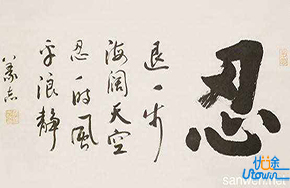 忍
退一步
海阔天空
忍一时風
平浪静
sanwen.net
优途
Utown